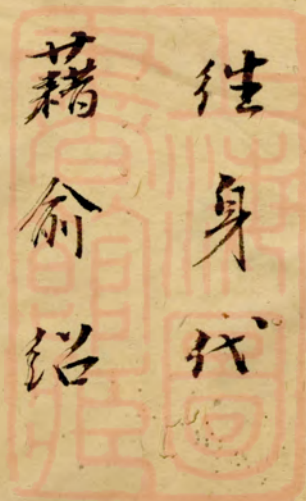 往身代
藉俞紹